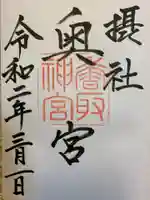 摂社
奥宮
香取神宮
令和二年二月一日